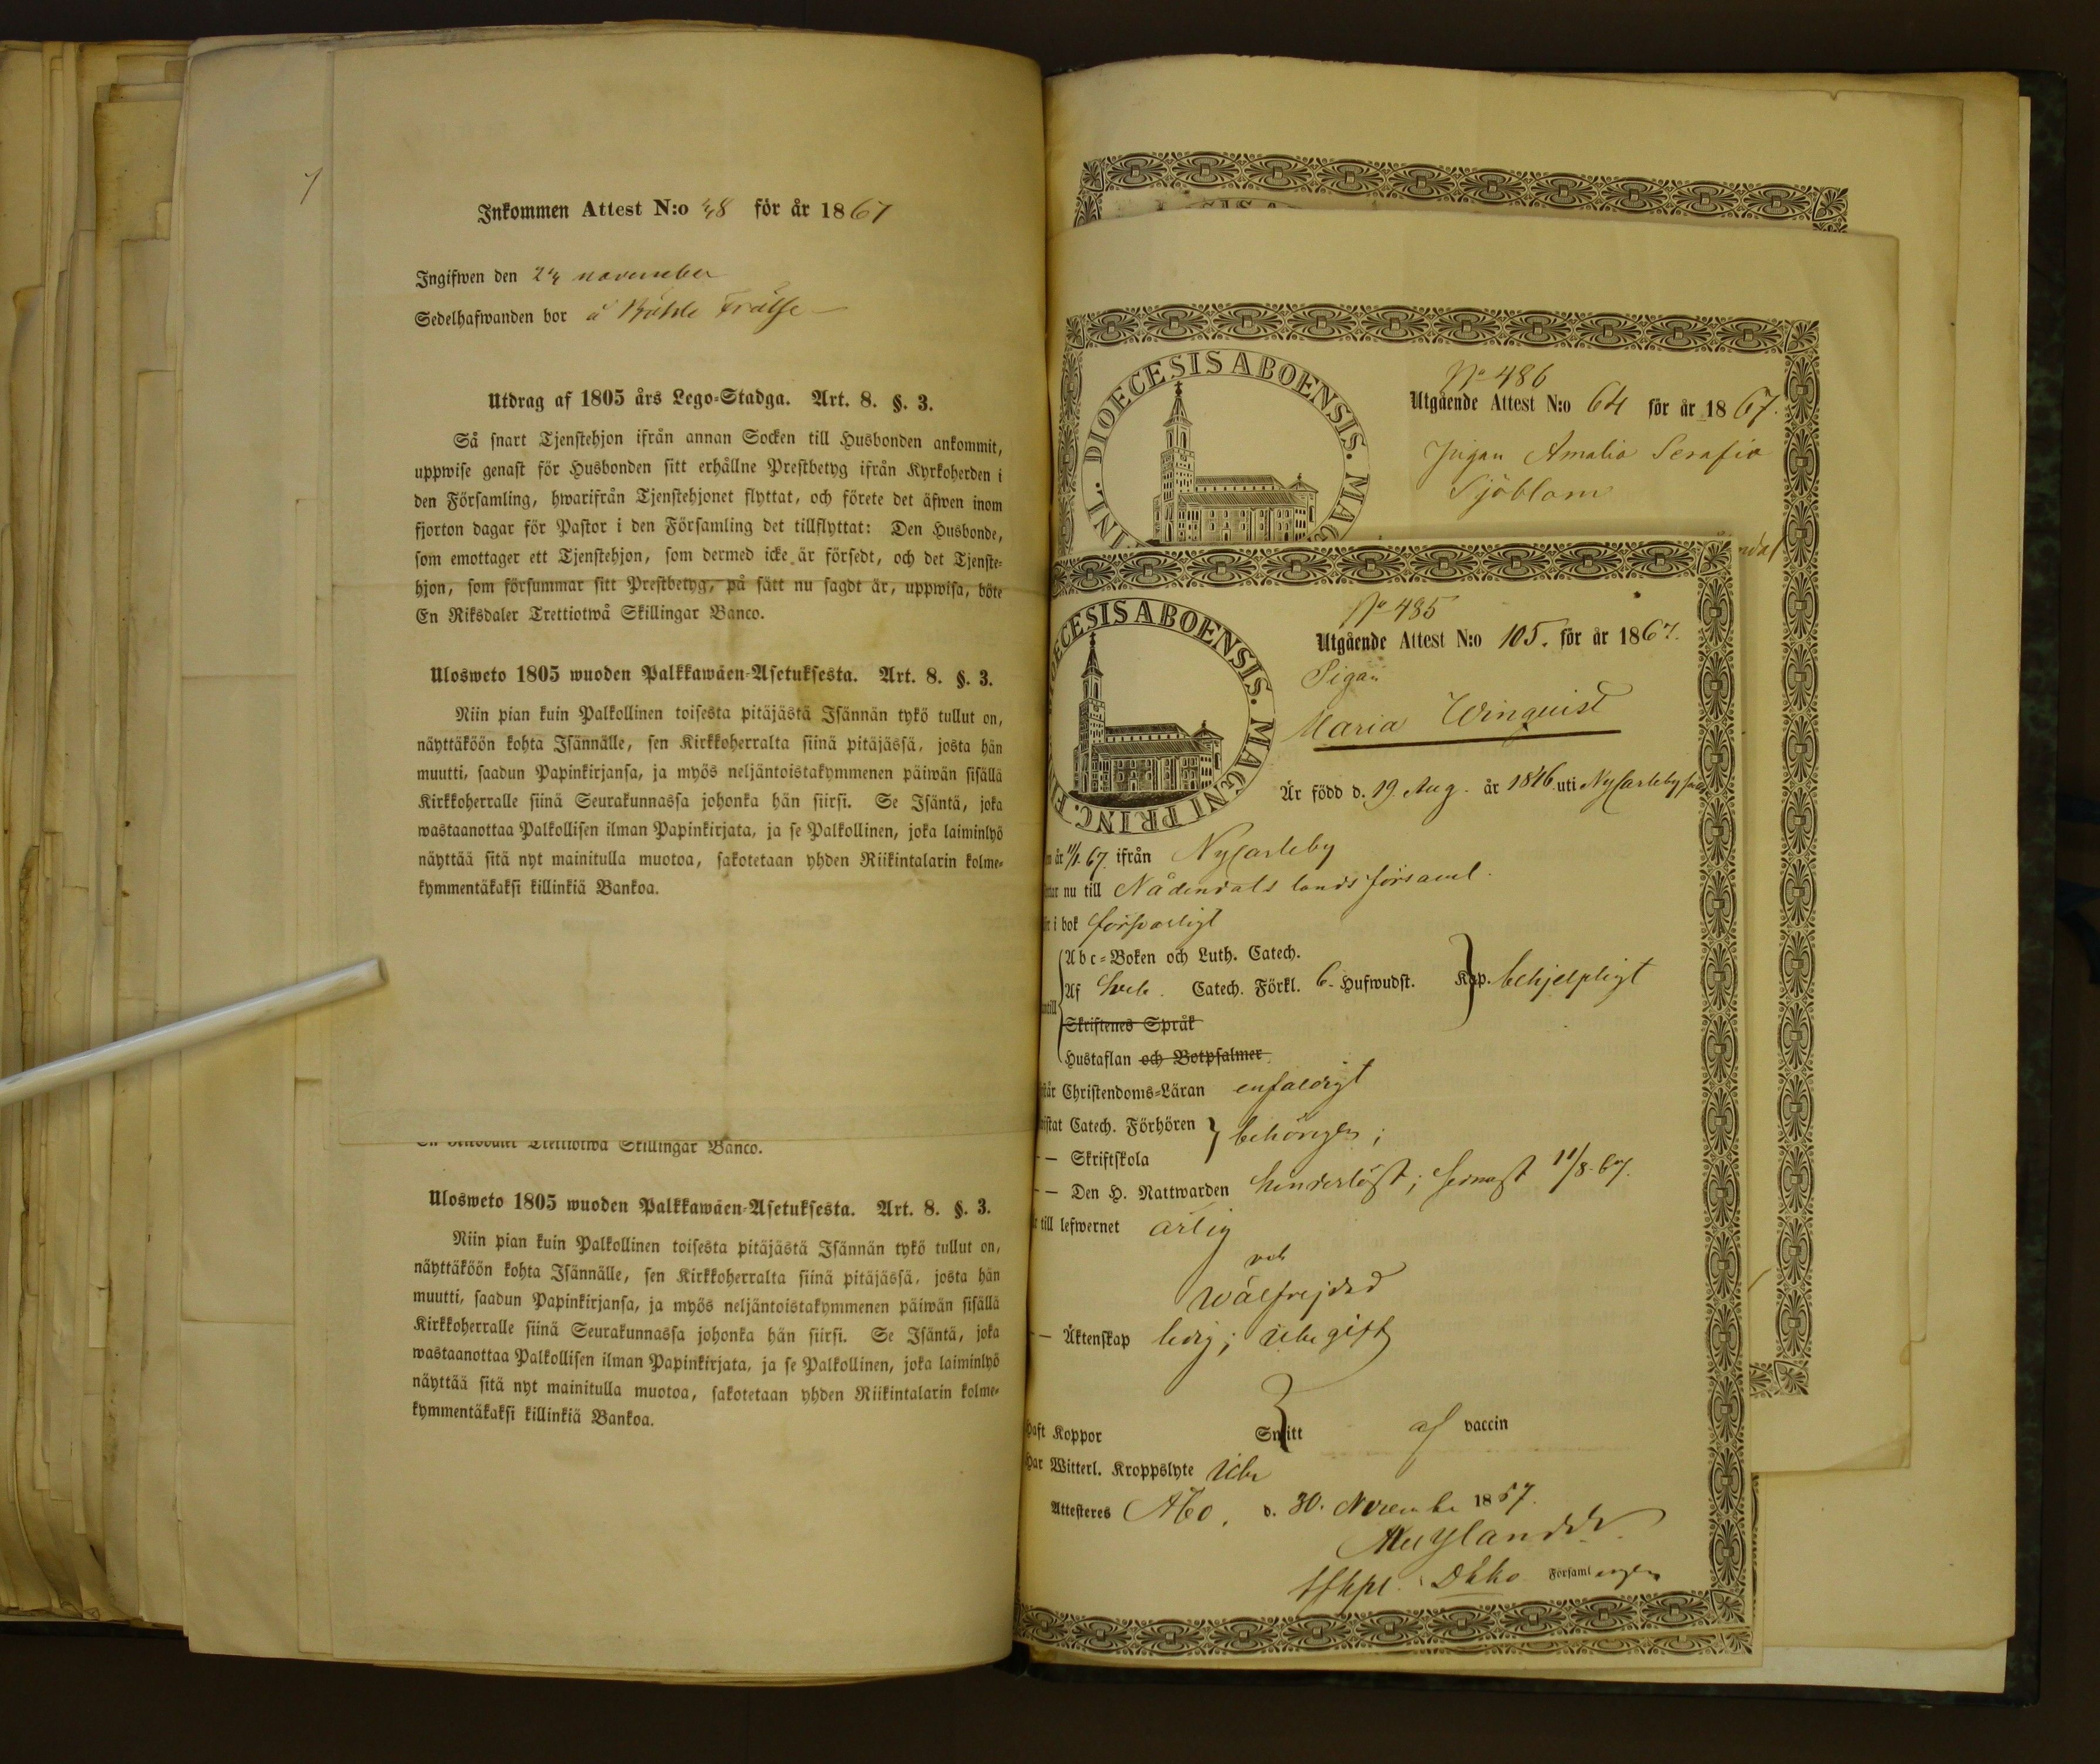 Inkommen Attest N:o 48 för år 1867
Ingifwen den 24 november
Sedelhafwanden bor å Frälse
Utdrag af 1805 års Lego-Stadga. Art. 8. §. 3.
Så snart Tjenstehjon ifrån annan Socken till Husbonden ankommit,
uppwise genast för Husbonden sitt erhållne Prestbetyg ifrån Kyrkoherden i
den Församling, hwarifrån Tjenstehjonet flyttat, och förete det äfwen inom
fjorton dagar för Pastor i den Församling det tillflyttat: Den Husbonde,
som emottager ett Tjenstehjon, som dermed icke är försedt, och det Tjenste-
hjon, som försummar sitt Prestbetyg, på sätt nu sagdt är, uppwisa, böte
En Riksdaler Trettiotwå Skillingar Banco.
Ulosweto 1805 wuoden Palkkawäen-Asetuksesta. Art. 8. §. 3.
Niin pian kuin Palkollinen toisesta pitäjästä Isännän tykö tullut on,
näyttäköön kohta Isännälle, sen Kirkkoherralta siinä pitäjässä, josta hän
muutti, saadun Papinkirjansa, ja myös neljäntoistakymmenen päiwän sisällä
Kirkkoherralle siinä Seurakunnassa johonka hän siirsi. Se Isäntä, joka
wastaanottaa Palkollisen ilman Papinkirjata, ja se Palkollinen, joka laiminlyö
näyttää sitä nyt mainitulla muotoa, sakotetaan yhden Riikintalarin kolme-
kymmentäkaksi killinkiä Bankoa.
En Riksdaler Trettiotwå Skillingar Banco.
Ulosweto 1805 wuoden Palkkawäen-Asetuksesta. Art. 8. §. 3.
Niin pian kuin Palkollinen toisesta pitäjästä Isännän tykö tullut on,
näyttäköön kohta Isännälle, sen Kirkkoherralta siinä pitäjässä, josta hän
muutti, saadun Papinkirjansa, ja myös neljäntoistakymmenen päiwän sisällä
Kirkkoherralle siinä Seurakunnassa johonka hän siirsi. Se Isäntä, joka
wastaanottaa Palkollisen ilman Papinkirjata, ja se Palkollinen, joka laiminlyö
näyttää sitä nyt mainitulla muotoa, sakotetaan yhden Riikintalarin kolme-
kymmentäkaksi killinkiä Bankoa.
DIOECESIS ABOENSIS. MAG
No 486
Utgående Attest N:o 64 för år 1867.
Pigan Amalia Serafia
Sjöblom
ECESIS ABOENSIS. MAGNI PRINC. F
No 485
Utgående Attest N:o 105. för år 1867.
Pigan
Maria Winquist
Är född d. 19. Aug. år 1846 uti NyCarleby
år 11/1. 67. ifrån NyCarleby
nu till Nådendals landsförsaml.
i bok försvarligt
Abc-Boken och Luth. Catech.
Af Sveb. Catech. Förkl. 6. Hufwudst. Kap. behjelpligt
Skriftenes Språk
Hustaflan och Botpsalmer
Christendoms-Läran enfaldigt
Catech. Förhören } behörigen;
— Skriftskola
— Den H. Nattwarden hinderlöst; senast 11/8. 67.
till lefwernet ärlig
och
wälfrejdad
— Äktenskap ledig; icke gift
Haft Koppor Snitt af vaccin
Har Witterl. Kroppslyte icke
Attesteres Åbo, d. 30. November 1867.
Församlingen